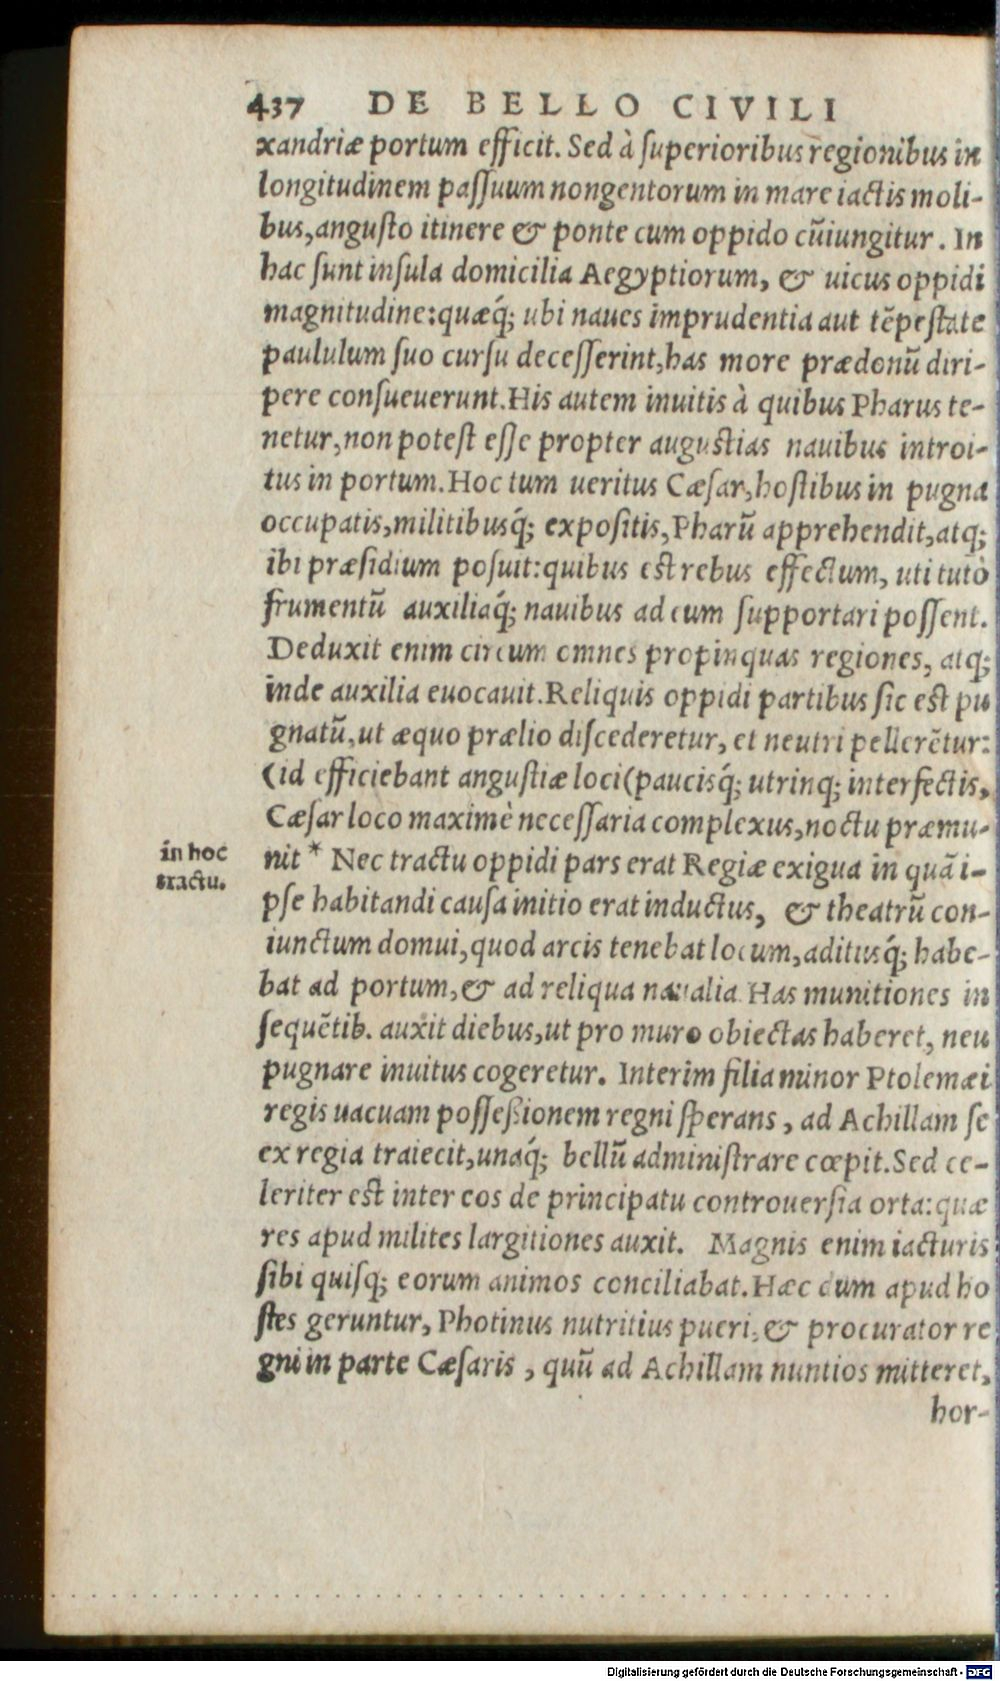 437 DE BELLO CIVILI
xandriæ portum efficit. Sed à ſuperioribus regionibus in
longitudinem paſſuum nongentorum in mare iactis moli-
bus, anguſto itinere & ponte cum oppido cũiungitur. In
hac ſunt inſula domicilia Aegyptiorum, & uicus oppidi
magnitudine: quæq́; ubi naues imprudentia aut tẽpeſtate
paululum ſuo curſu deceſſerint, has more prædonũ diri-
pere conſueuerunt. His autem inuitis à quibus Pharus te-
netur, non poteſt eſſe propter auguſtias nauibus introi-
tus in portum. Hoc tum ueritus Cæſar, hoſtibus in pugna
occupatis, militibusq́; expoſitis, Pharũ apprehendit, atq;
ibi præſidium poſuit: quibus eſt rebus effectum, uti tutò
frumentũ auxiliaq́; nauibus ad eum ſupportari poſſent.
Deduxit enim circum omnes propinquas regiones, atq;
inde auxilia euocauit. Reliquis oppidi partibus ſic eſt pu
gnatũ, ut æquo prælio diſcederetur, et neutri pellerẽtur:
(id efficiebant anguſtiæ loci(paucisq́; utrinq; interfectis,
Cæſar loco maximè neceſſaria complexus, noctu præmu-
in hoc
tractu.
nit * Nec tractu oppidi pars erat Regiæ exigua in quã i-
pſe habitandi cauſa initio erat inductus, & theatrũ con-
iunctum domui, quod arcis tenebat locum, aditusq́; habe-
bat ad portum, & ad reliqua naualia. Has munitiones in
ſequẽtib. auxit diebus, ut pro muro obiectas haberet, neu
pugnare inuitus cogeretur. Interim filia minor Ptolemæi
regis uacuam poſſeßionem regni ſperans, ad Achillam ſe
ex regia traiecit, unaq́; bellũ adminiſtrare cœpit. Sed ce-
leriter eſt inter eos de principatu controuerſia orta: quæ
res apud milites largitiones auxit. Magnis enim iacturis
ſibi quiſq; eorum animos conciliabat. Hæc dum apud ho
ſtes geruntur, Photinus nutritius pueri, & procurator re
gni in parte Cæſaris, quũ ad Achillam nuntios mitteret,
hor-
Digitalisierung gefördert durch die Deutsche Forschungsgemeinschaft - DFG